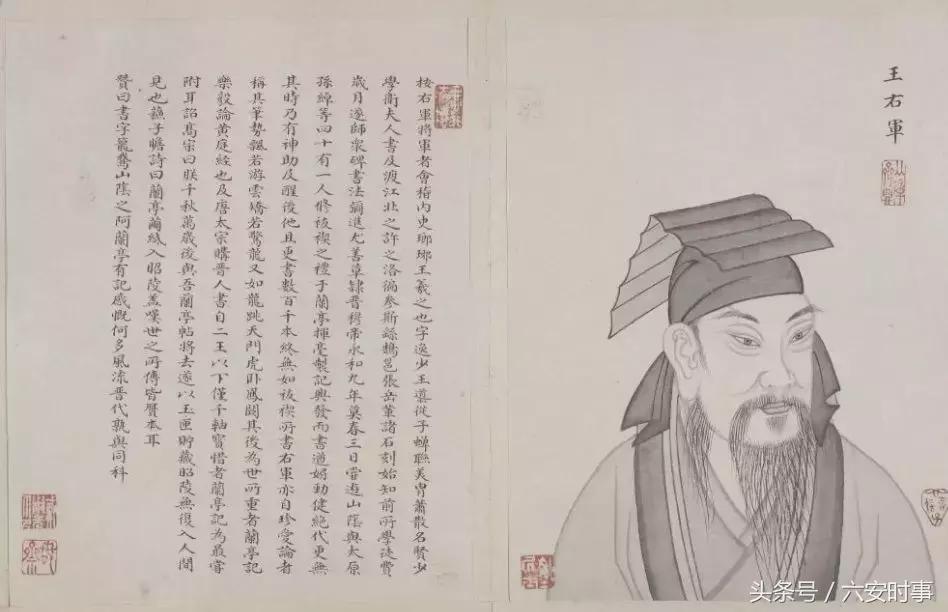 王右軍
按右軍將軍者會稽內史瑯琊王羲之也字逸少王導從子蟬聯美冑蕭散名賢少
學衛夫人書及渡江北之許之洛徧參斯繇鵠邕張岳華諸石刻始知前所學徒費
歲月遂師衆碑書法彌進尤善草隸晉穆帝永和九年莫春三日嘗遊山陰與太原
孫綽等四十有一人修袚禊之禮于蘭亭揮毫製記興發而書遒媚勁健絕代更無
其時乃有神助及醒後他日更書數百千本終無如袚禊所書右軍亦自珍愛論者
稱其筆勢飄若游雲矯若驚龍又如龍跳天門虎臥鳳闕其後為世所重者蘭亭記
樂毅論黃庭經也及唐太宗購晉人書自二王以下僅千軸寶惜者蘭亭記為最嘗
附耳詔高宗曰朕千秋萬歲後與吾蘭亭帖將去遂以玉匣貯藏昭陵無復入人間
見也蘇子瞻詩曰蘭亭繭紙入昭陵蓋嘆世之所傳皆贋本耳
贊曰書字籠鵞山陰之阿蘭亭有記感慨何多風流晉代孰與同科
头条号 / 六安时事